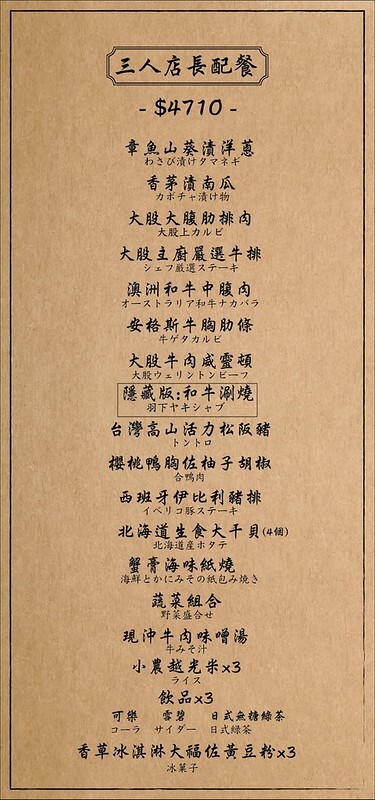 三人店長配餐
- $4710 -
章魚山葵漬洋蔥
わさび漬けタマネギ
香茅漬南瓜
カボチャ漬け物
大股大腹肋排肉
大股上カルビ
大股主廚嚴選牛排
シェフ厳選ステーキ
澳洲和牛中腹肉
オーストラリア和牛ナカバラ
安格斯牛胸肋條
牛ゲタカルビ
大股牛肉威靈頓
大股ウェリントンビーフ
隱藏版:和牛涮燒
羽下ヤキシャブ
台灣高山活力松阪豬
トントロ
櫻桃鴨胸佐柚子胡椒
合鴨肉
西班牙伊比利豬排
イベリコ豚ステーキ
北海道生食大干貝(4個)
北海道産ホタテ
蟹膏海味紙燒
海鮮とかにみその紙包み焼き
蔬菜組合
野菜盛合せ
現沖牛肉味噌湯
牛みそ汁
小農越光米x3
ライス
飲品x3
可樂 雪碧 日式無糖綠茶
コーラ サイダー 日式緑茶
香草冰淇淋大福佐黃豆粉x3
冰菓子